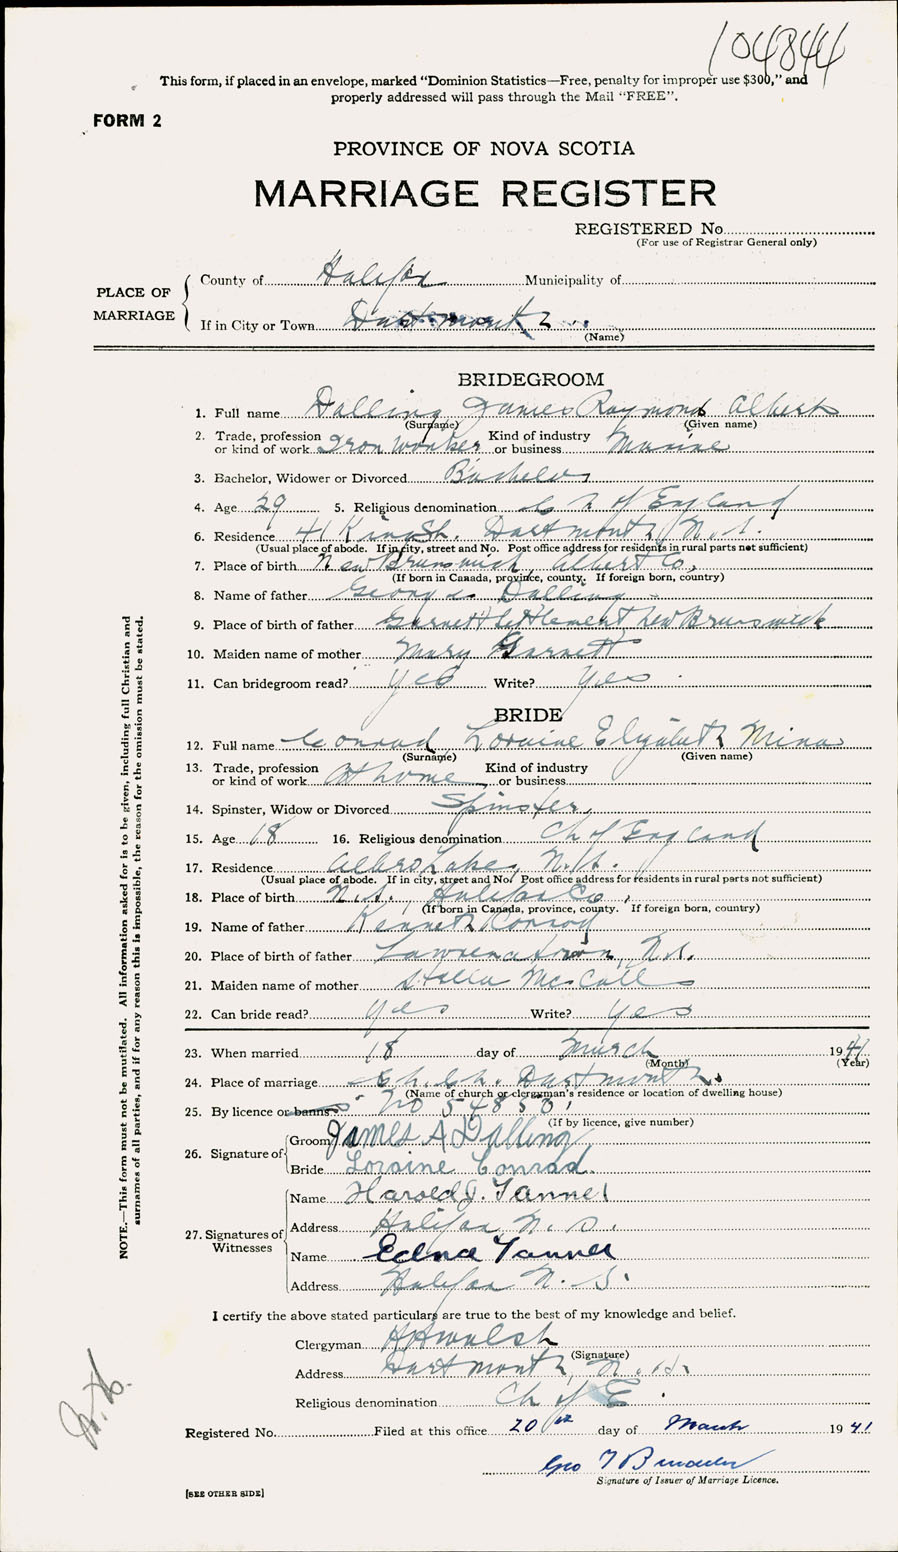 104844
This form, if placed in an envelope, marked "Dominion Statistics—Free, penalty for improper use $300," and
properly addressed will pass through the Mail "FREE".
FORM 2
PROVINCE OF NOVA SCOTIA
MARRIAGE REGISTER
REGISTERED No.
(For use of Registrar General only)
PLACE OF MARRIAGE
County of Halifax Municipality of
If in City or Town Dartmouth
(Name)
BRIDEGROOM
1. Full name Dalling James Raymond Albert
(Surname) (Given name)
2. Trade, profession or kind of work Iron Worker Kind of industry or business Marine
3. Bachelor, Widower or Divorced Bachelor
4. Age 29 5. Religious denomination Ch of England
6. Residence 41 King St. Dartmouth, N.S.
(Usual place of abode. If in city, street and No. Post office address for residents in rural parts not sufficient)
7. Place of birth New Brunswick, Albert Co,
(If born in Canada, province, county. If foreign born, country)
8. Name of father George Dalling
9. Place of birth of father Garnett Settlement New Brunswick
10. Maiden name of mother Mary Garnett
11. Can bridegroom read? yes Write? yes
BRIDE
12. Full name Conrad Loraine Elizabeth Mina
(Surname) (Given name)
13. Trade, profession or kind of work At home Kind of industry or business
14. Spinster, Widow or Divorced Spinster
15. Age 18 16. Religious denomination Ch of England
17. Residence Albro Lake, N.S.
(Usual place of abode. If in city, street and No. Post office address for residents in rural parts not sufficient)
18. Place of birth N.S., Halifax Co,
(If born in Canada, province, county. If foreign born, country)
19. Name of father Kenneth Conrod
20. Place of birth of father Lawrencetown, N.S.
21. Maiden name of mother Stella McCall
22. Can bride read? yes Write? yes
23. When married 18 day of March 1941
(Month) (Year)
24. Place of marriage Ch. Ch. Dartmouth.
(Name of church or clergyman's residence or location of dwelling house)
25. By licence or banns No 54850
(If by licence, give number)
26. Signature of
Groom James A Dalling
Bride Loraine Conrad.
27. Signatures of Witnesses
Name Harold J. Tanner
Address Halifax N.S.
Name Edna Tanner
Address Halifax N.S.
I certify the above stated particulars are true to the best of my knowledge and belief.
Clergyman Walsh
(Signature)
Address Dartmouth, N.S.
Religious denomination Ch of E.
Registered No. Filed at this office 20th day of March 1941
Geo
Signature of Issuer of Marriage Licence.
[SEE OTHER SIDE]
NOTE.—This form must not be mutilated. All information asked for is to be given, including full Christian and
surnames of all parties, and if for any reason this is impossible, the reason for the omission must be stated.